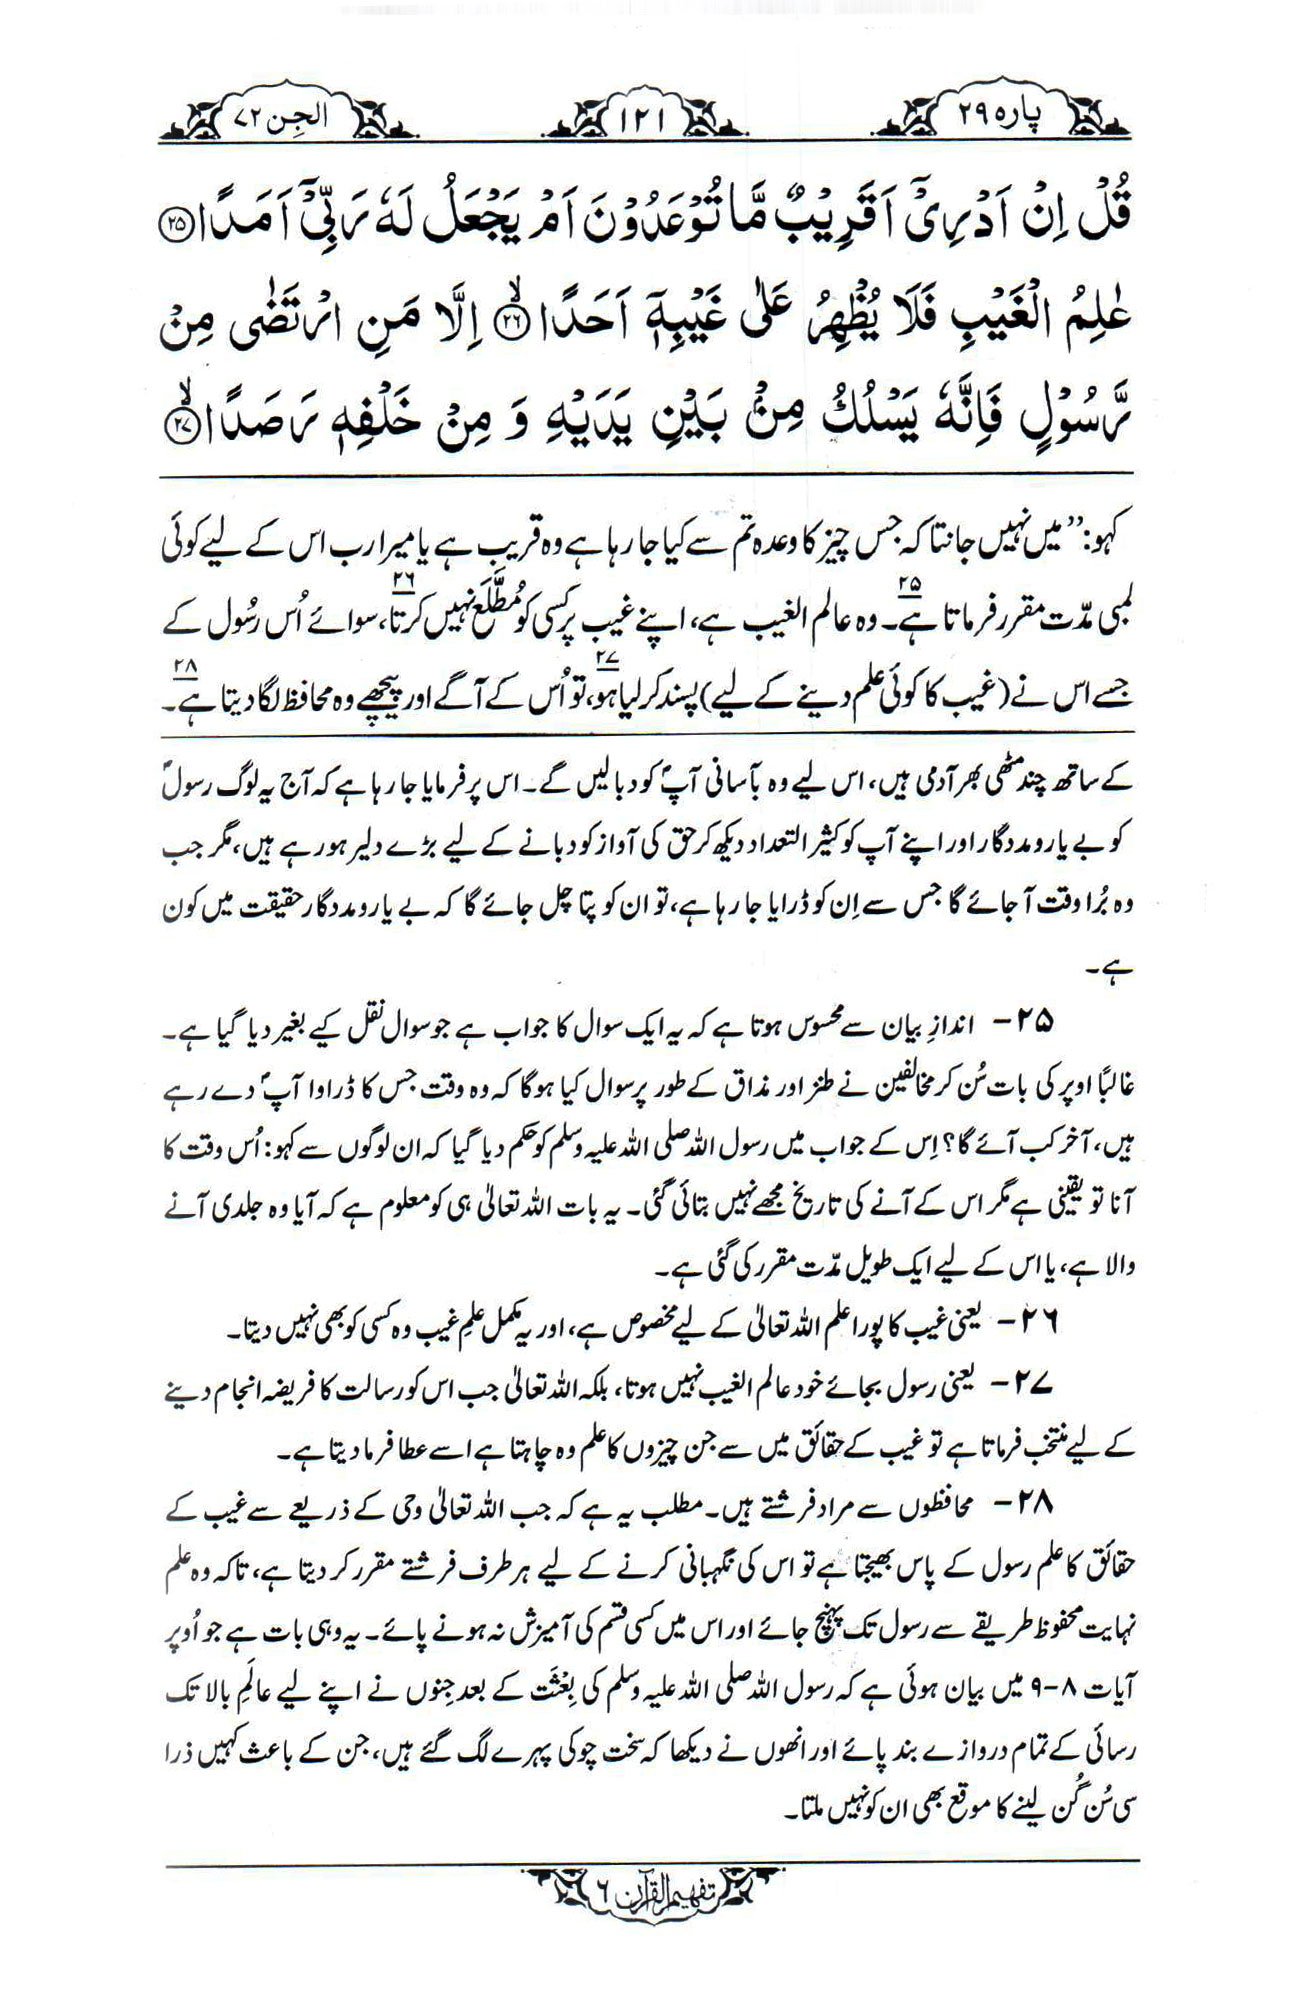 پارہ ۲۹
۱۲۱
الجن ۷۲
قُلْ اِنْ اَدْرِیْۤ اَقَرِیْبٌ مَّا تُوْعَدُوْنَ اَمْ یَجْعَلُ لَهٗ رَبِّیْۤ اَمَدًا ﴿۲۵﴾
عٰلِمُ الْغَیْبِ فَلَا یُظْهِرُ عَلٰی غَیْبِهٖۤ اَحَدًا ﴿۲۶﴾ۙ اِلَّا مَنِ ارْتَضٰی مِنْ
رَّسُوْلٍ فَاِنَّهٗ یَسْلُكُ مِنْۢ بَیْنِ یَدَیْهِ وَ مِنْ خَلْفِهٖ رَصَدًا ﴿۲۷﴾ۙ
کہو: ’’میں نہیں جانتا کہ جس چیز کا وعدہ تم سے کیا جا رہا ہے وہ قریب ہے یا میرا رب اس کے لیے کوئی
لمبی مدّت مقرر فرماتا ہے۲۵۔ وہ عالم الغیب ہے، اپنے غیب پر کسی کو مُطَّلَع نہیں کرتا۲۶، سوائے اُس رسُول کے
جسے اس نے (غیب کا کوئی علم دینے کے لیے) پسند کر لیا ہو۲۷، تو اُس کے آگے اور پیچھے وہ محافظ لگا دیتا ہے۲۸۔
کے ساتھ چند مٹھی بھر آدمی ہیں، اس لیے وہ بآسانی آپؐ کو دبا لیں گے۔ اس پر فرمایا جا رہا ہے کہ آج یہ لوگ رسولؐ
کو بے یارومددگار اور اپنے آپ کو کثیر التعداد دیکھ کر حق کی آواز کو دبانے کے لیے بڑے دلیر ہو رہے ہیں، مگر جب
وہ بُرا وقت آجائے گا جس سے اِن کو ڈرایا جا رہا ہے، تو ان کو پتا چل جائے گا کہ بے یارومددگار حقیقت میں کون
ہے۔
۲۵- اندازِ بیان سے محسوس ہوتا ہے کہ یہ ایک سوال کا جواب ہے جو سوال نقل کیے بغیر دیا گیا ہے۔
غالبًا اوپر کی بات سُن کر مخالفین نے طنز اور مذاق کے طور پر سوال کیا ہوگا کہ وہ وقت جس کا ڈراوا آپؐ دے رہے
ہیں، آخر کب آئے گا؟ اِس کے جواب میں رسول اللہ صلی اللہ علیہ وسلم کو حکم دیا گیا کہ ان لوگوں سے کہو: اُس وقت کا
آنا تو یقینی ہے مگر اس کے آنے کی تاریخ مجھے نہیں بتائی گئی۔ یہ بات اللہ تعالیٰ ہی کو معلوم ہے کہ آیا وہ جلدی آنے
والا ہے، یا اس کے لیے ایک طویل مدّت مقرر کی گئی ہے۔
۲۶- یعنی غیب کا پورا علم اللہ تعالیٰ کے لیے مخصوص ہے، اور یہ مکمل علمِ غیب وہ کسی کو بھی نہیں دیتا۔
۲۷- یعنی رسول بجائے خود عالم الغیب نہیں ہوتا، بلکہ اللہ تعالیٰ جب اس کو رسالت کا فریضہ انجام دینے
کے لیے منتخب فرماتا ہے تو غیب کے حقائق میں سے جن چیزوں کا علم وہ چاہتا ہے اسے عطا فرما دیتا ہے۔
۲۸- محافظوں سے مراد فرشتے ہیں۔ مطلب یہ ہے کہ جب اللہ تعالیٰ وحی کے ذریعے سے غیب کے
حقائق کا علم رسول کے پاس بھیجتا ہے تو اس کی نگہبانی کرنے کے لیے ہر طرف فرشتے مقرر کر دیتا ہے، تاکہ وہ علم
نہایت محفوظ طریقے سے رسول تک پہنچ جائے اور اس میں کسی قسم کی آمیزش نہ ہونے پائے۔ یہ وہی بات ہے جو اُوپر
آیات ۸-۹ میں بیان ہوئی ہے کہ رسول اللہ صلی اللہ علیہ وسلم کی بِعْثَت کے بعد جِنوں نے اپنے لیے عالَمِ بالا تک
رسائی کے تمام دروازے بند پائے اور انھوں نے دیکھا کہ سخت چوکی پہرے لگ گئے ہیں، جن کے باعث کہیں ذرا
سی سُن گُن لینے کا موقع بھی ان کو نہیں ملتا۔
تفہیم القرآن ۶